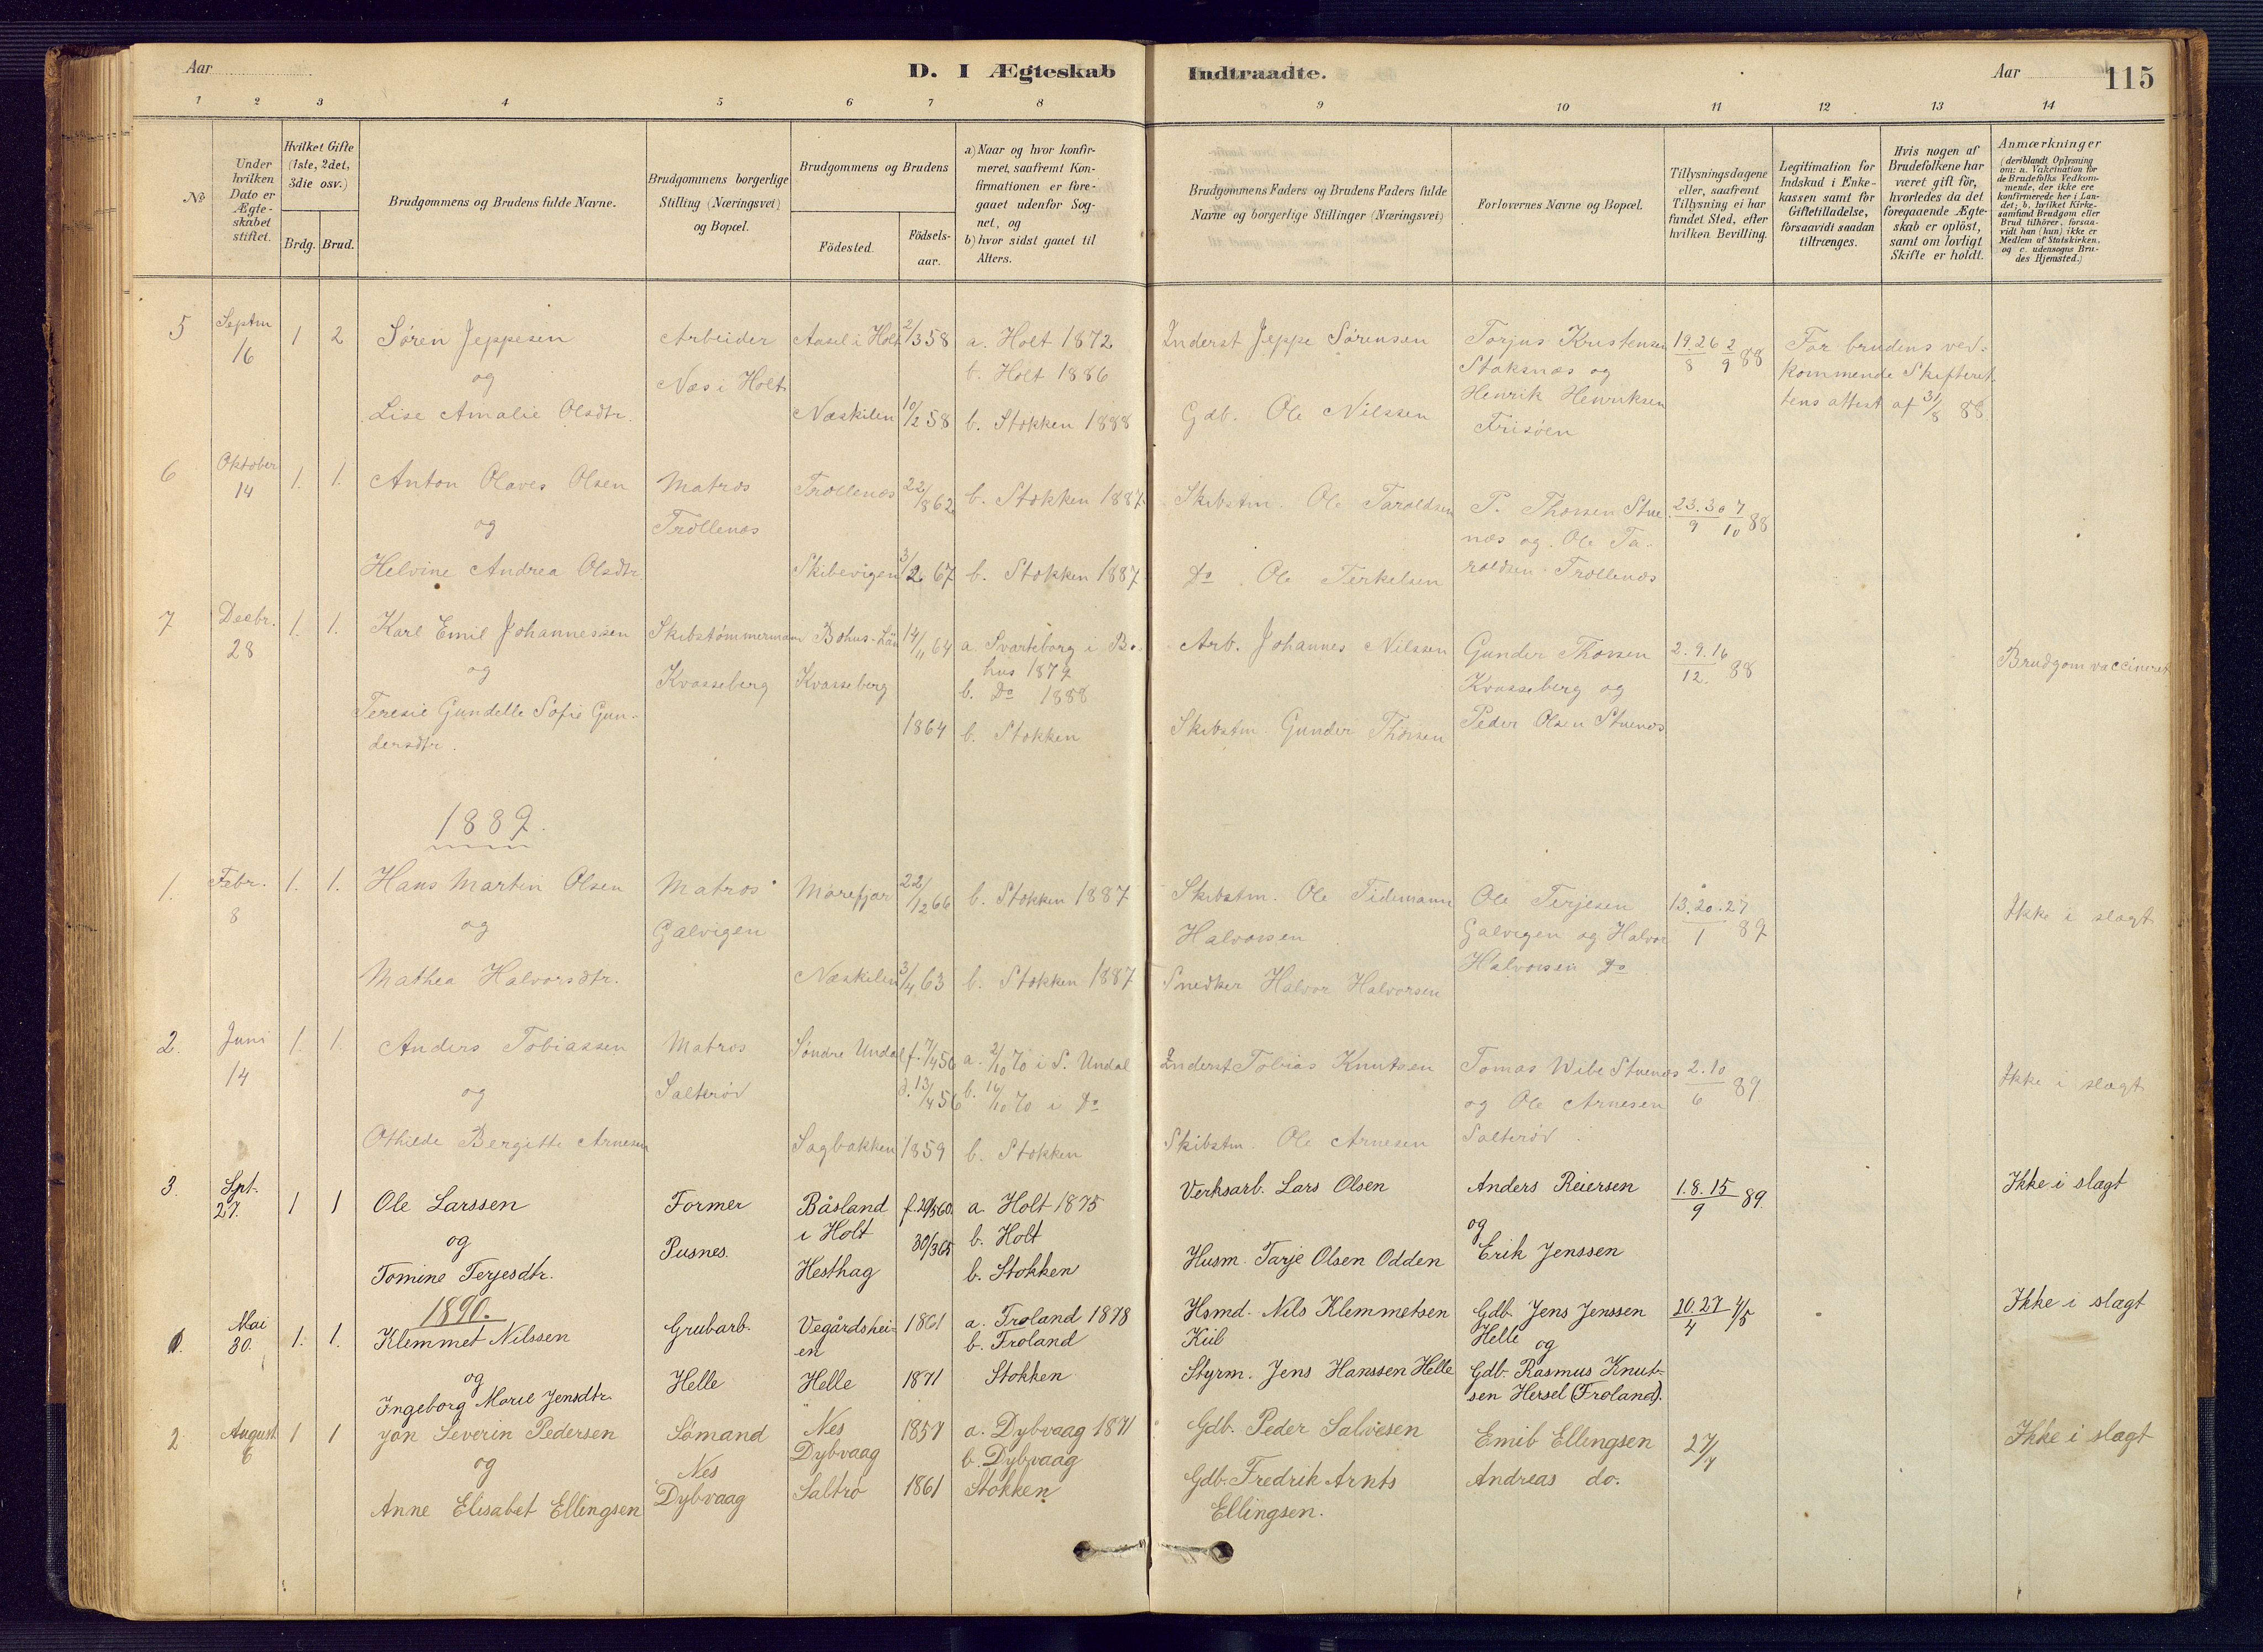 Aar
D. I Ægteskab Indtraadte.
Aar
115
1 2 3 4 5 6 7 8 9 10 11 12 13 14
No
Under hvilken Dato er Ægteskabet stiftet.
Hvilket Gifte (1ste, 2det, 3die osv.)
Brdg. Brud.
Brudgommens og Brudens fulde Navne.
Brudgommens borgerlige Stilling (Næringsvei) og Bopæl.
Brudgommens og Brudens
Födested.
Födsels-aar.
a) Naar og hvor konfirmeret, saafremt Konfirmationen er foregaaet udenfor Sognet, og
b) hvor sidst gaaet til Alters.
Brudgommens Faders og Brudens Faders fulde Navne og borgerlige Stillinger (Næringsvei)
Forlovernes Navne og Bopæl.
Tillysningsdagene eller, saafremt Tillysning ei har fundet Sted, efter hvilken Bevilling.
Legitimation for Indskud i Enkekassen samt for Giftetilladelse, forsaavidt saadan tiltrænges.
Hvis nogen af Brudefolkene har været gift för, hvorledes da det foregaaende Ægteskab er oplöst, samt om lovligt Skifte er holdt.
Anmærkninger (deriblandt Oplysning om: a. Vakcination for de Brudefolks Vedkommende, der ikke ere konfirmerede her i Landet; b. hvilket Kirkesamfund Brudgom eller Brud tilhörer, forsaavidt han (hun) ikke er Medlem af Statskirken, og c. udensogns Brudes Hjemsted.)
5 Septm 16 1 2 Søren Jeppesen Arbeider Aasel i Holt 2/3 58 a. Holt 1872 Inderst Jeppe Sørensen Torjus Kristensen 19.26/8 2/9 88 For brudens ved-
og Næs i Holt b. Holt 1886 Staksnæs og kommende Skifteret-
Lise Amalie Olsdtr. Næskilen 10/2 58 b. Stokken 1888 Gdb. Ole Nilssen Henrik Henriksen tens attest af 31/8 88
Frisøen
6 Oktober 14 1. 1. Anton Olaves Olsen Matros Trollenæs 22/8 62 b. Stokken 1887 Skibstm. Ole Taroldsen P. Thorsen Stue- 23.30/9 7/10 88
og Trollenæs næs og Ole Ta-
Helvine Andrea Olsdtr. Skibevigen 3/2 67 b. Stokken 1887 Do. Ole Terkelsen roldsen Trollenæs
7 Decbr. 28 1. 1. Karl Emil Johannessen Skibstømmermann Bohus-Län 14/11 64 a. Svarteborg i Bo- Arb. Johannes Nilssen Gunder Thorsen 2.9.16/12. 88 Brudgom vaccineret
og Kvasseberg Kvasseberg hus 1879 Kvasseberg og
b. Do 1888
Teresie Gundelle Sofie Gun- 1864 b. Stokken Skibstm. Gunder Thorsen Peder Olsen Stuenæs
dersdtr.
1889.
1. Febr. 8 1. 1. Hans Martin Olsen Matros Morefjær 22/12 66 b. Stokken 1887 Skibstm. Ole Tidemann Ole Terjesen 13.20.27/1 89 Ikke i slægt
og Galvigen Halvorsen Galvigen og Halvor
Mathea Halvorsdtr. Næskilen 3/4 63 b. Stokken 1887 Snedker Halvor Halvorsen Halvorsen Do
2. Juni 14 1. 1. Anders Tobiassen Matros Søndre Undal f. 7/4 56 a. 2/10 70 i S. Undal Inderst Tobias Knutsen Tomas Wibe Stuenæs 2.10/6 89 Ikke i slægt
og Salterød d. 13/4 56 b. 16/10 70 i Do og Ole Arnesen
Othilde Bergitte Arnesen Sagbakken 1859 b. Stokken Skibstm. Ole Arnesen Salterød.
3. Spt. 27. 1 1 Ole Larssen Former Båsland f. 29/5 60 a. Holt 1875 Verksarb. Lars Olsen Anders Reiersen 1.8.15/9 89. Ikke i slagt
og Pusnes. i Holt 30/3 65 b. Holt og
Tomine Terjesdtr. Hesthag b. Stokken Husm. Tarje Olsen Odden Erik Jenssen
1890.
1. Mai 30. 1. 1. Klemmet Nilssen Grubarb. Vegårdshei- 1861 a. Froland 1878 Hsmd. Nils Klemmetsen Gdb. Jens Jenssen 20.27/4 4/5 Ikke i slagt
en b. Froland Kiib Helle
og Helle Helle 1871 Stokken Styrm. Jens Hanssen Helle og
Ingeborg Marie Jensdtr. Gdb. Rasmus Knut-
sen Hersel (Froland).
2 August 6 1 1 Jon Severin Pedersen Sømand Nes 1857 a. Dybvaag 1871 Gdb. Peder Salvesen Emil Ellingsen 27/7 Ikke i slagt
og Nes Dybvaag b. Dybvaag
Anne Elisabet Ellingsen Dybvaag Saltrø 1861 Stokken Gdb. Fredrik Arnts Andreas do.
Ellingsen.